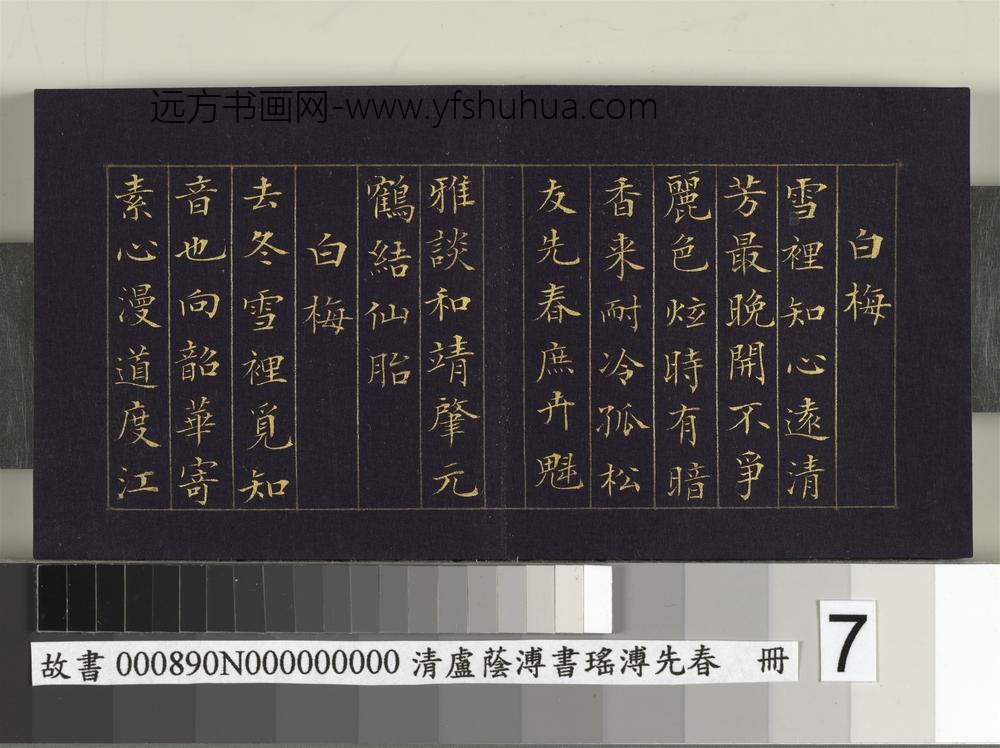 远方书画网-www.yfshuhua.com
白梅
雪裡知心遠清
芳最晚開不爭
麗色炫時有暗
香来耐冷孤松
友先春庶卉魁
雅談和靖肇元
鶴結仙胎
白梅
去冬雪裡覓知
音也向韶華寄
素心漫道度江
故書000890N000000000清盧蔭溥書瑤溥先春 冊
7